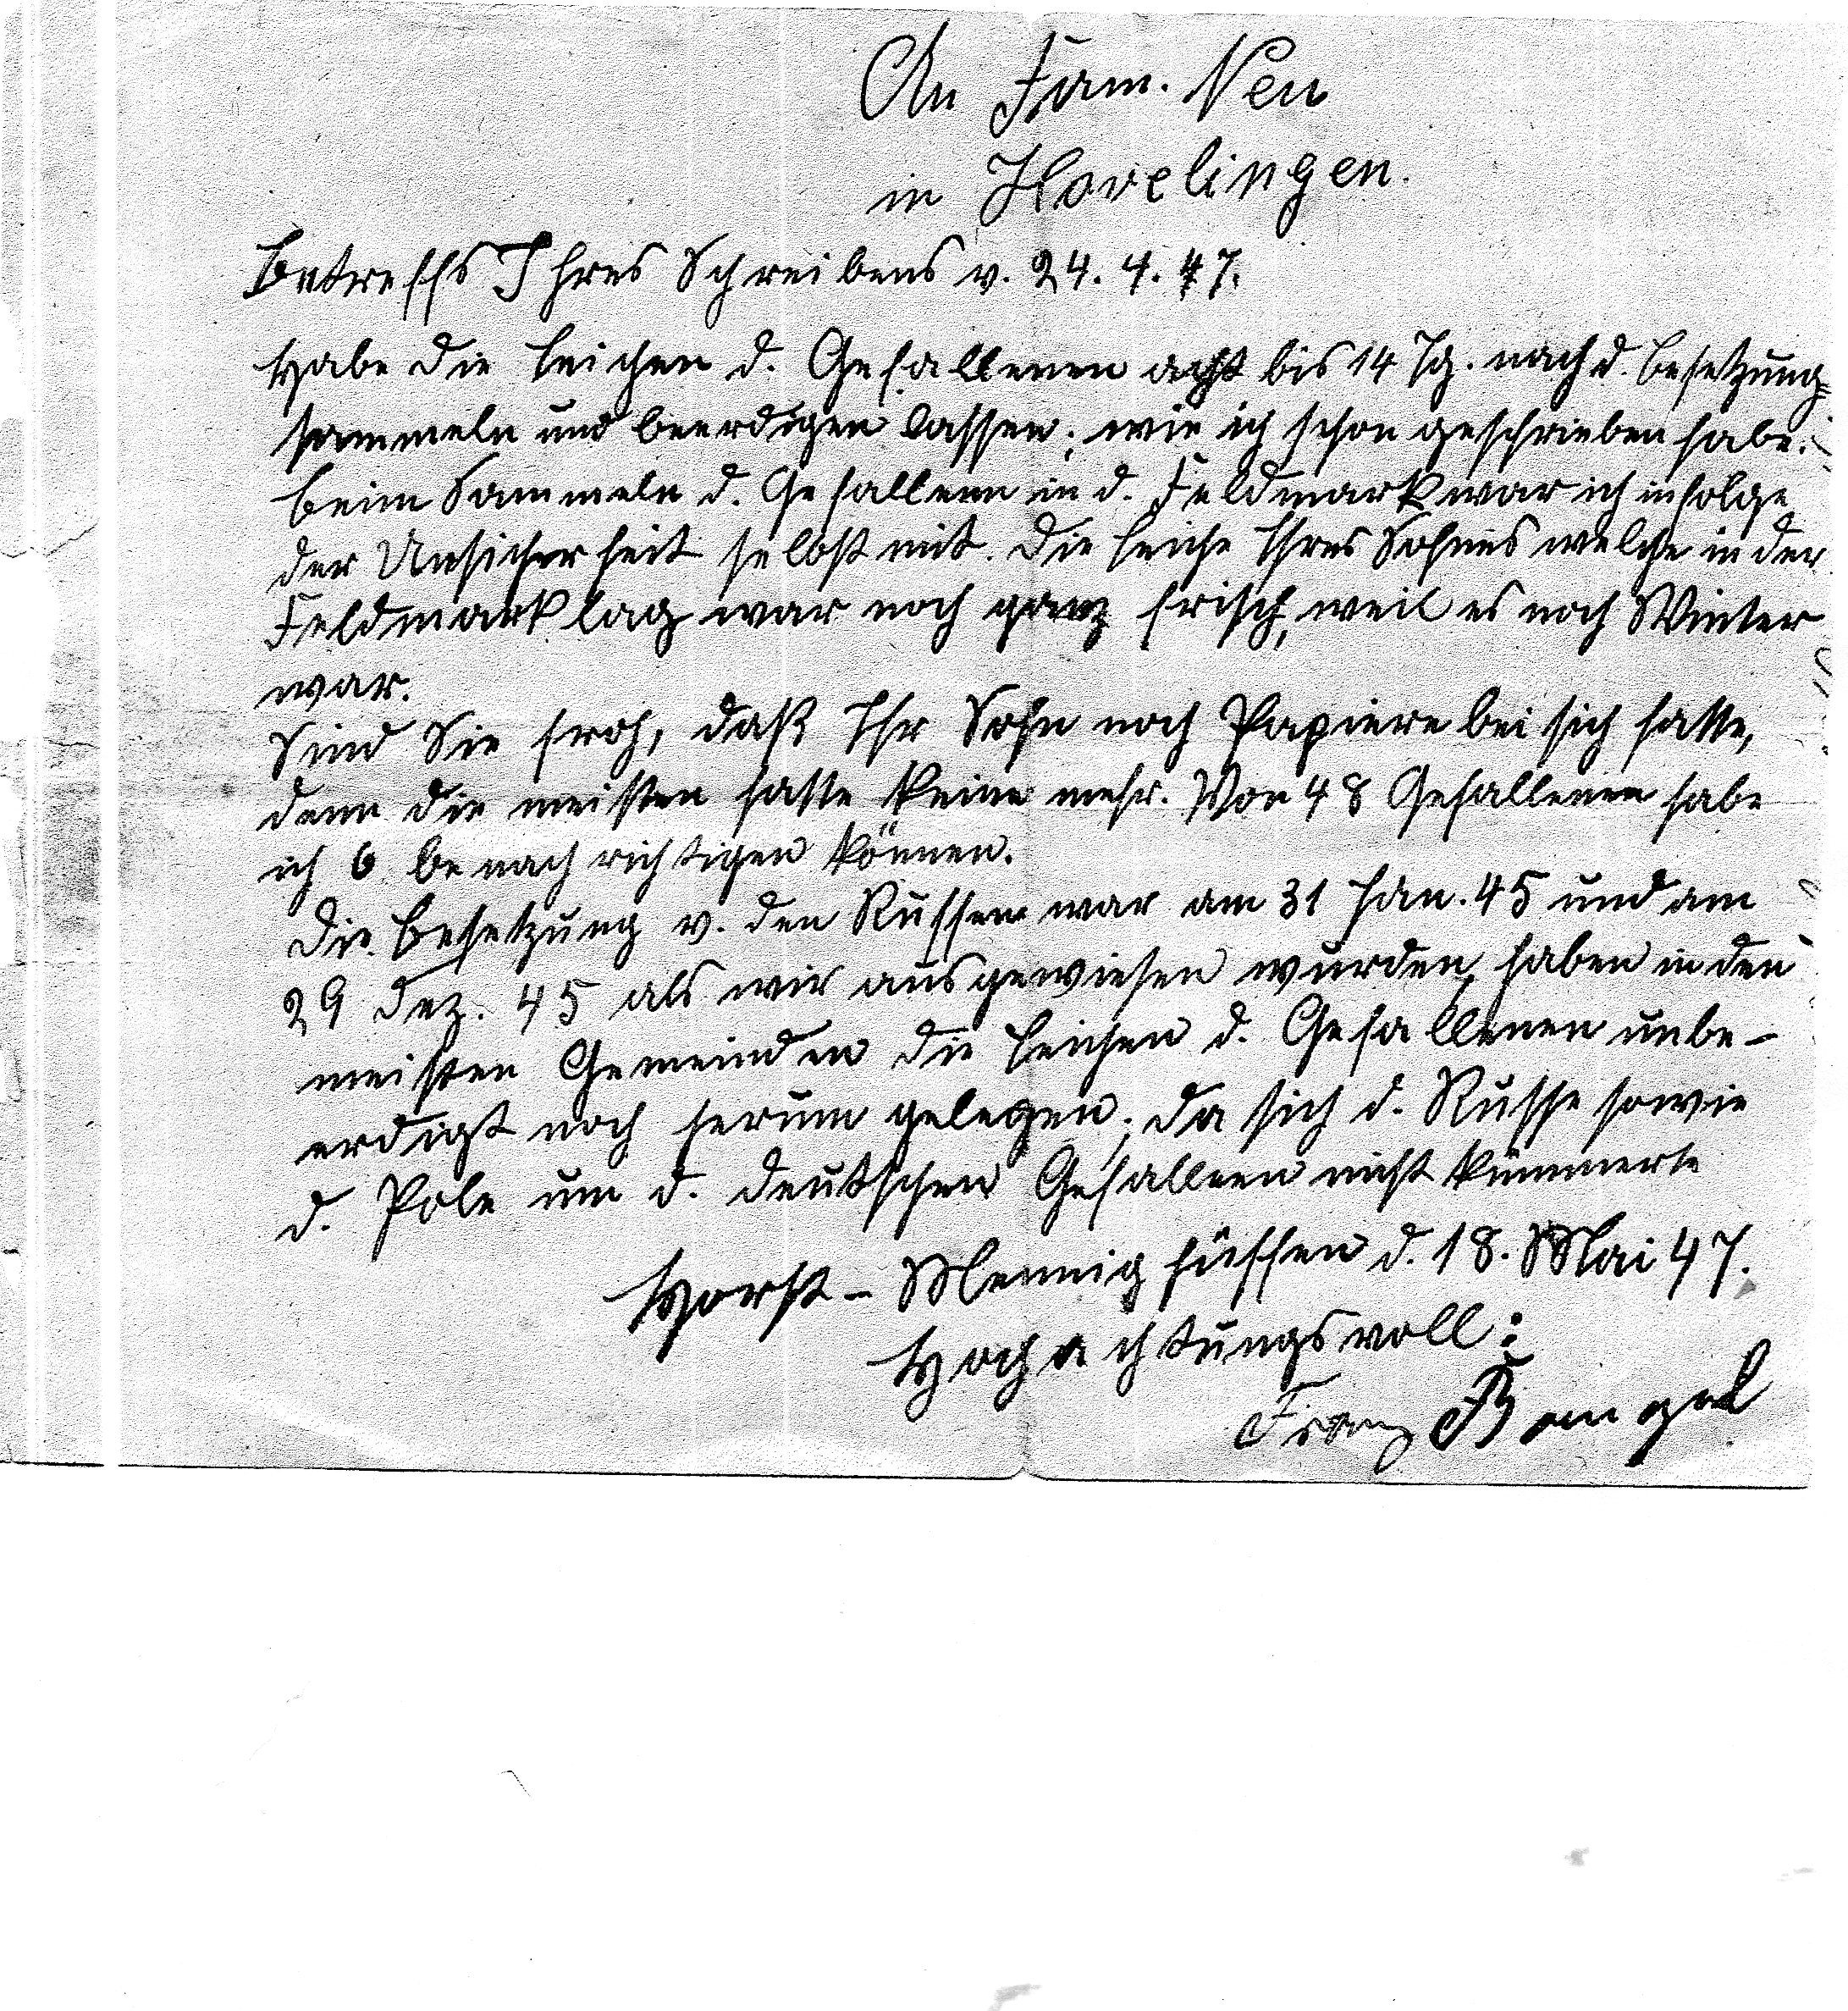 An Fam. Neu
in Havelingen.
Betreffs Ihres Schreibens v. 24. 4. 47.
Habe die Leichen d. Gefallenen acht bis 14 Tg. nach d. Besetzung
sammeln und beerdigen lassen, wie ich schon geschrieben habe.
Beim Sammeln d. Gefallenen in d. Feldmark war ich infolge
der Unsicherheit selbst mit. Die Leiche Ihres Sohnes welche in der
Feldmark lag war noch ganz frisch, weil es noch Winter
war.
Sind Sie froh, daß Ihr Sohn noch Papiere bei sich hatte,
denn die meisten hatte keine mehr. Von 48 Gefallenen habe
ich 6 benachrichtigen können.
Die Besetzung v. den Russen war am 31 Jan. 45 und am
29 Dez. 45 als wir ausgewiesen wurden, haben in den
meisten Gemeinden die Leichen d. Gefallenen unbe-
erdigt noch herum gelegen, da sich d. Russe sowie
d. Pole um d. deutschen Gefallenen nicht kümmerte
Horst-Mennighüffen d. 18. Mai 47.
Hochachtungsvoll:
Franz